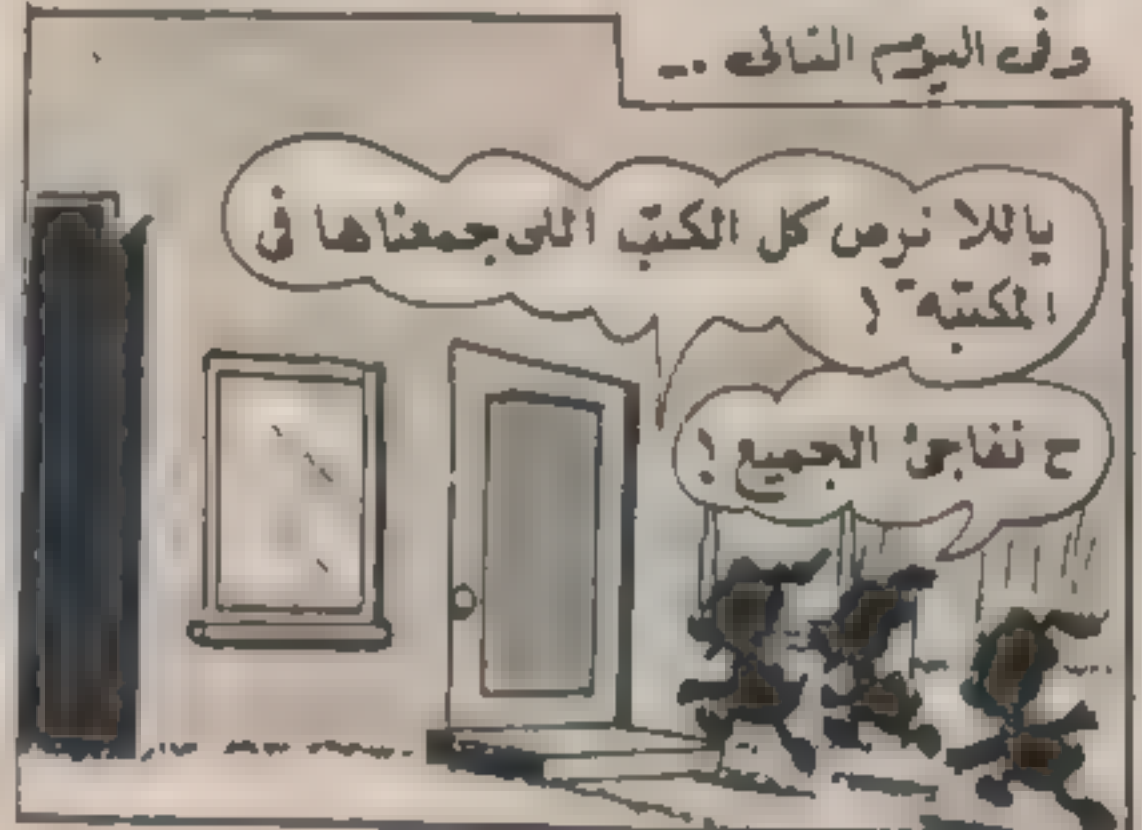 وفى اليوم التالى ..
ياللا نرص كل الكتب اللى جمعناها فى
المكتبة !
ح نفاجئ الجميع !